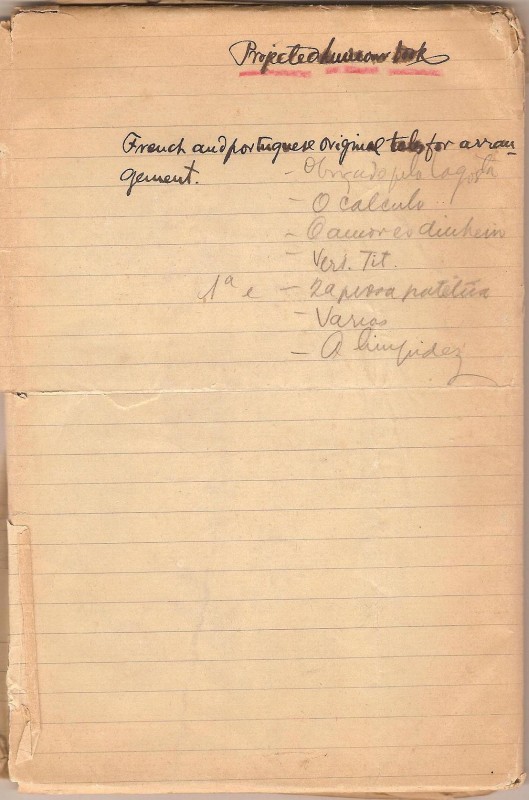 Projected humour book
French and portuguese original tales for arran-
gement.
- Obrigado pela lagosta
- O calculo
- O amor e o dinheiro
- Vers. Tit.
1ª e - 2ª prova patética
- Varios
- A limpidez